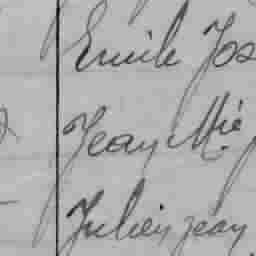 Emile Jos
Jean Mie
Julien jean